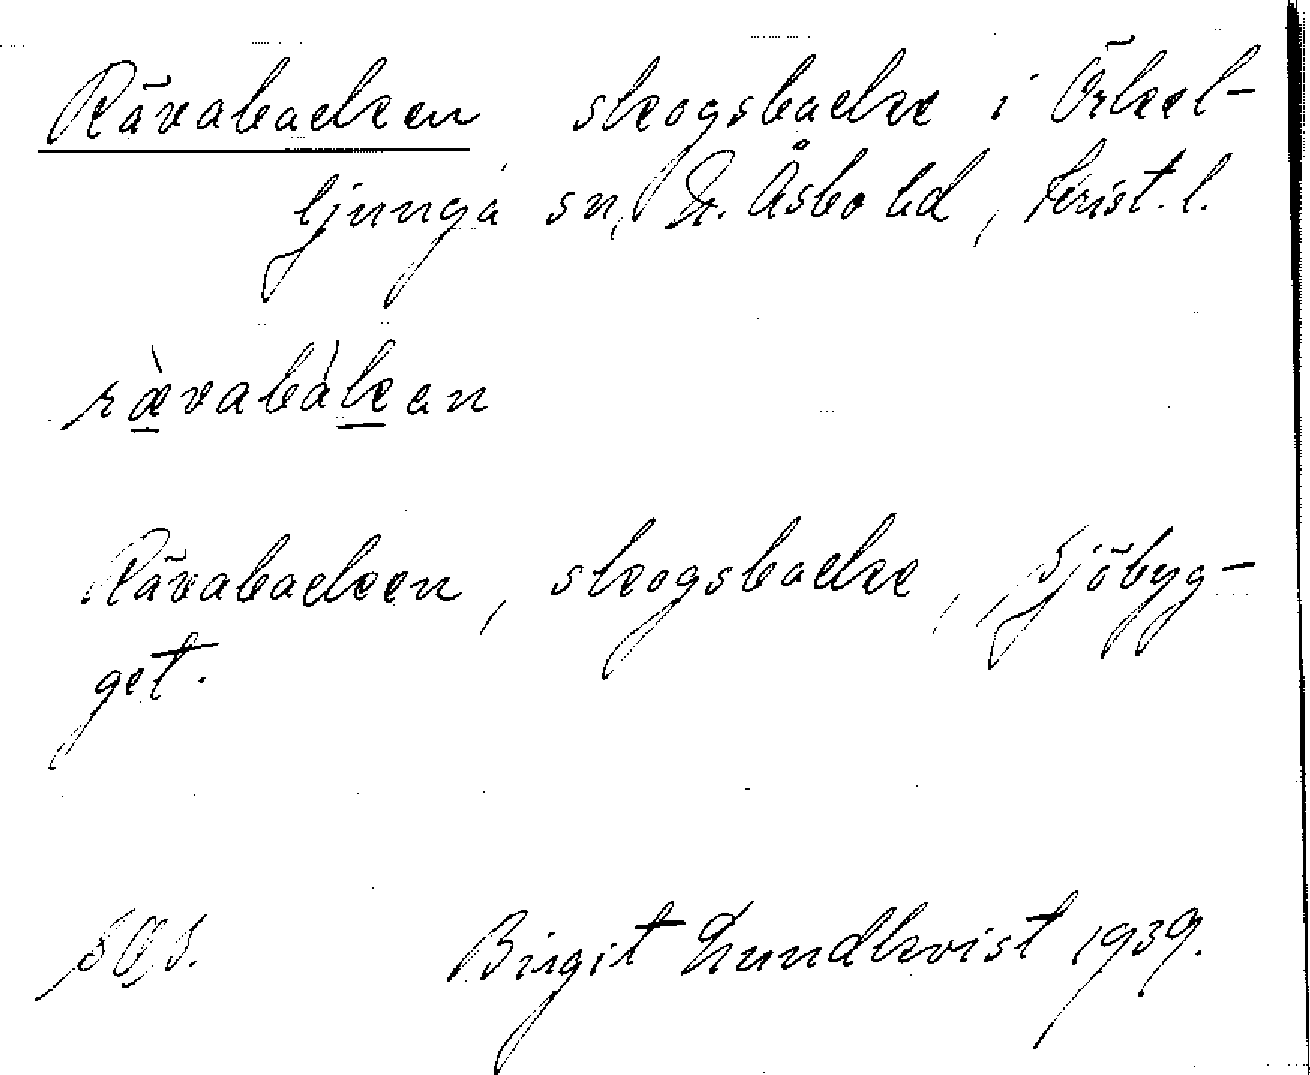 Rävabacken skogsbacke i Örkel-
ljunga sn, N. Åsbo hd, Krist. l.
rævabàkan
Rävabacken, skogsbacke, Sjöbyg-
get.
Birgit Lundkvist 1939.